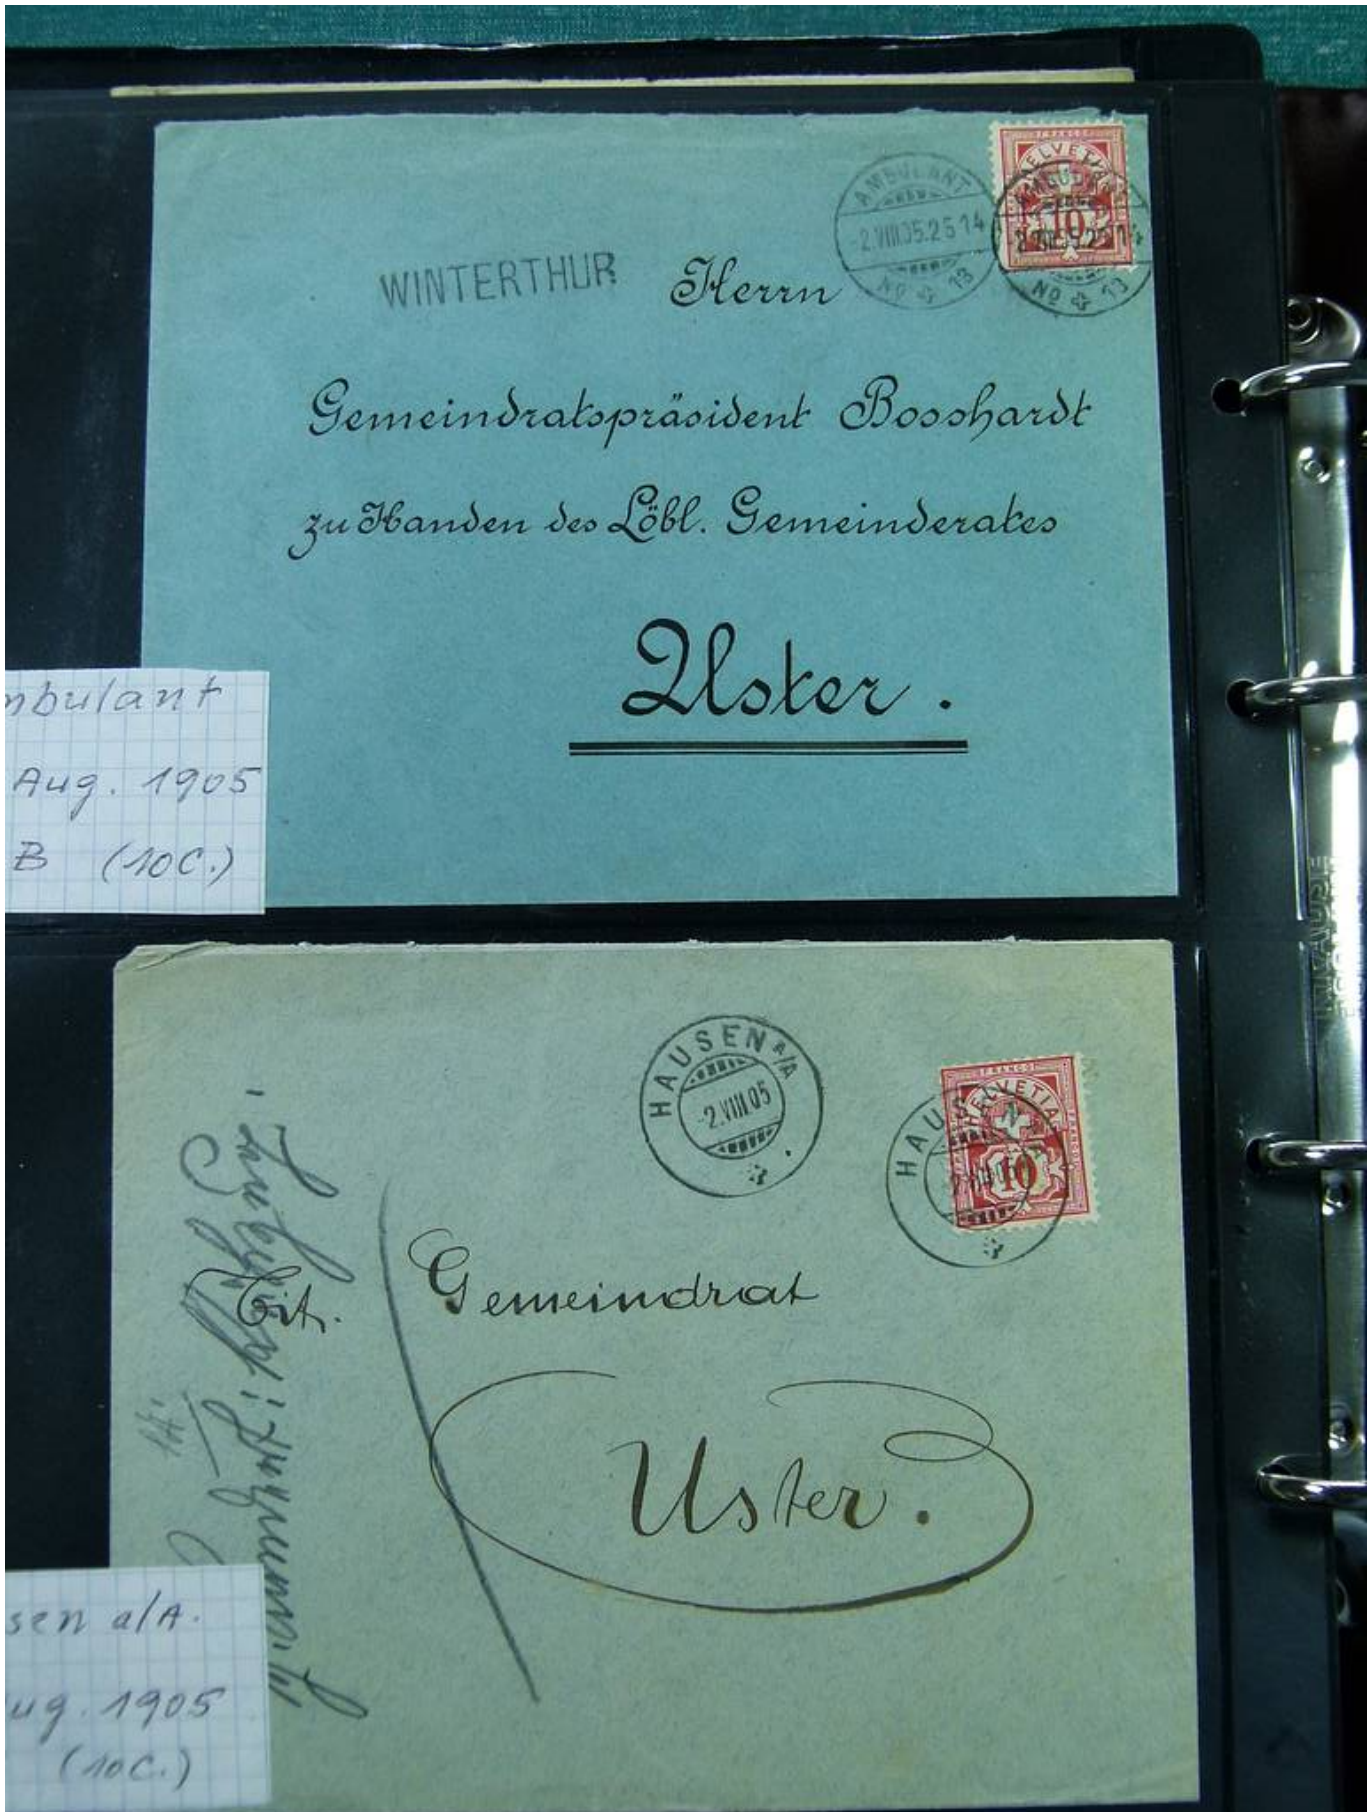 FRANCO
HELVETIA
10
AMBULANT
-2.VIII.05.25 14
No 13
AMBULANT
No 13
WINTERTHUR
Herrn
Gemeindratspräsident Bosshardt
zu Handen des Löbl. Gemeinderates
Uster.
mbulant
Aug. 1905
B (10c.)
HAUSEN A/A
-2.VIII.05
FRANCO
HELVETIA
FRANCO
10
HAUSEN
Tit. Gemeindrat
Uster.
sen a/A.
ug. 1905
(10c.)